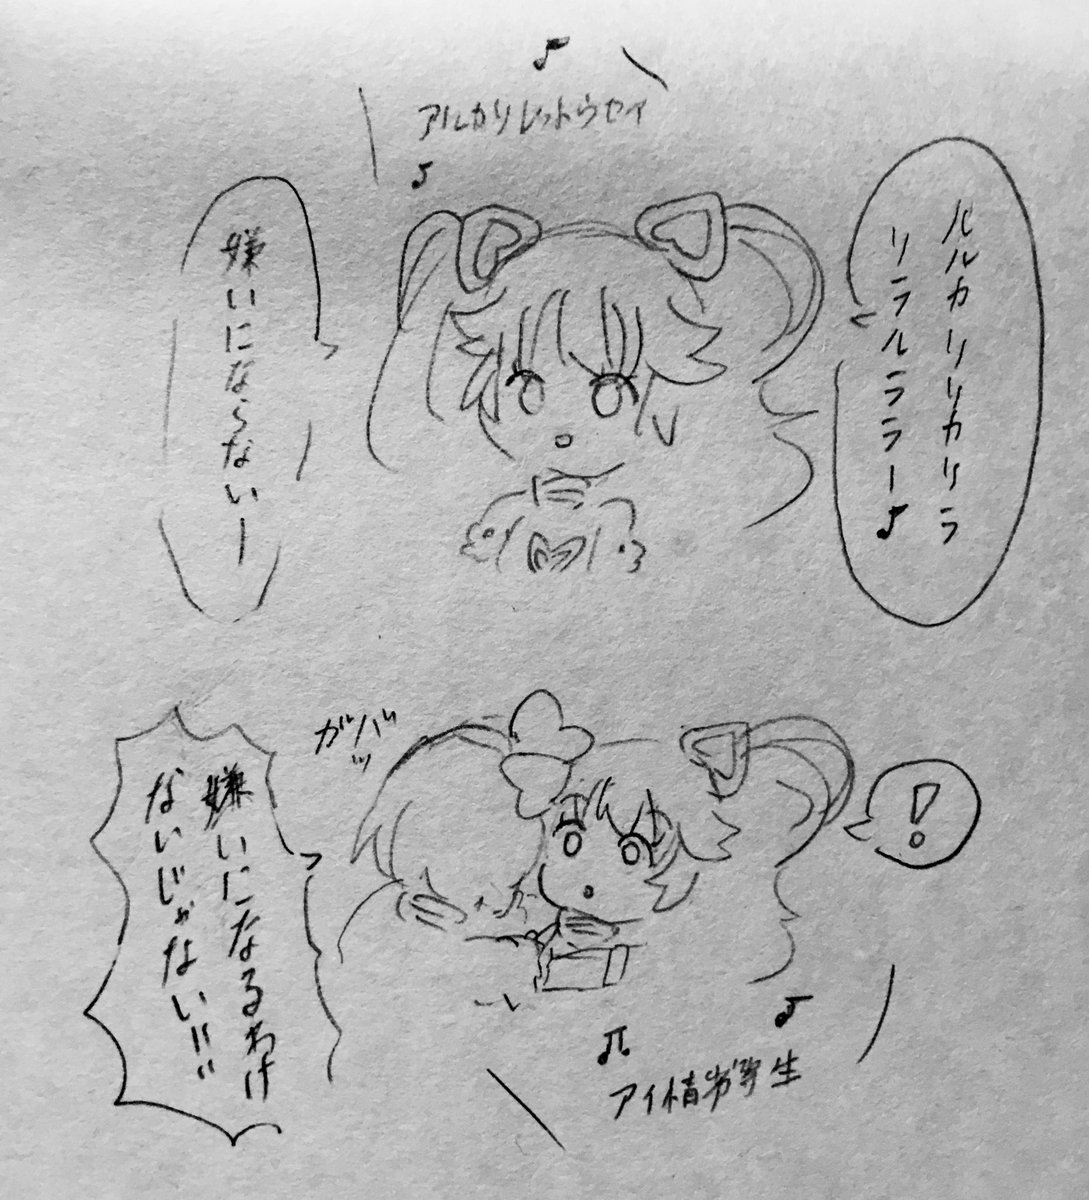 ♪
アルカリレットウセイ
♪
ルルカリリカリラ
リラルララー♪
嫌いにな〜ないー
!
ガバッ
嫌いになるわけ
ないじゃない!!!
♪
♫
アイ情劣等生